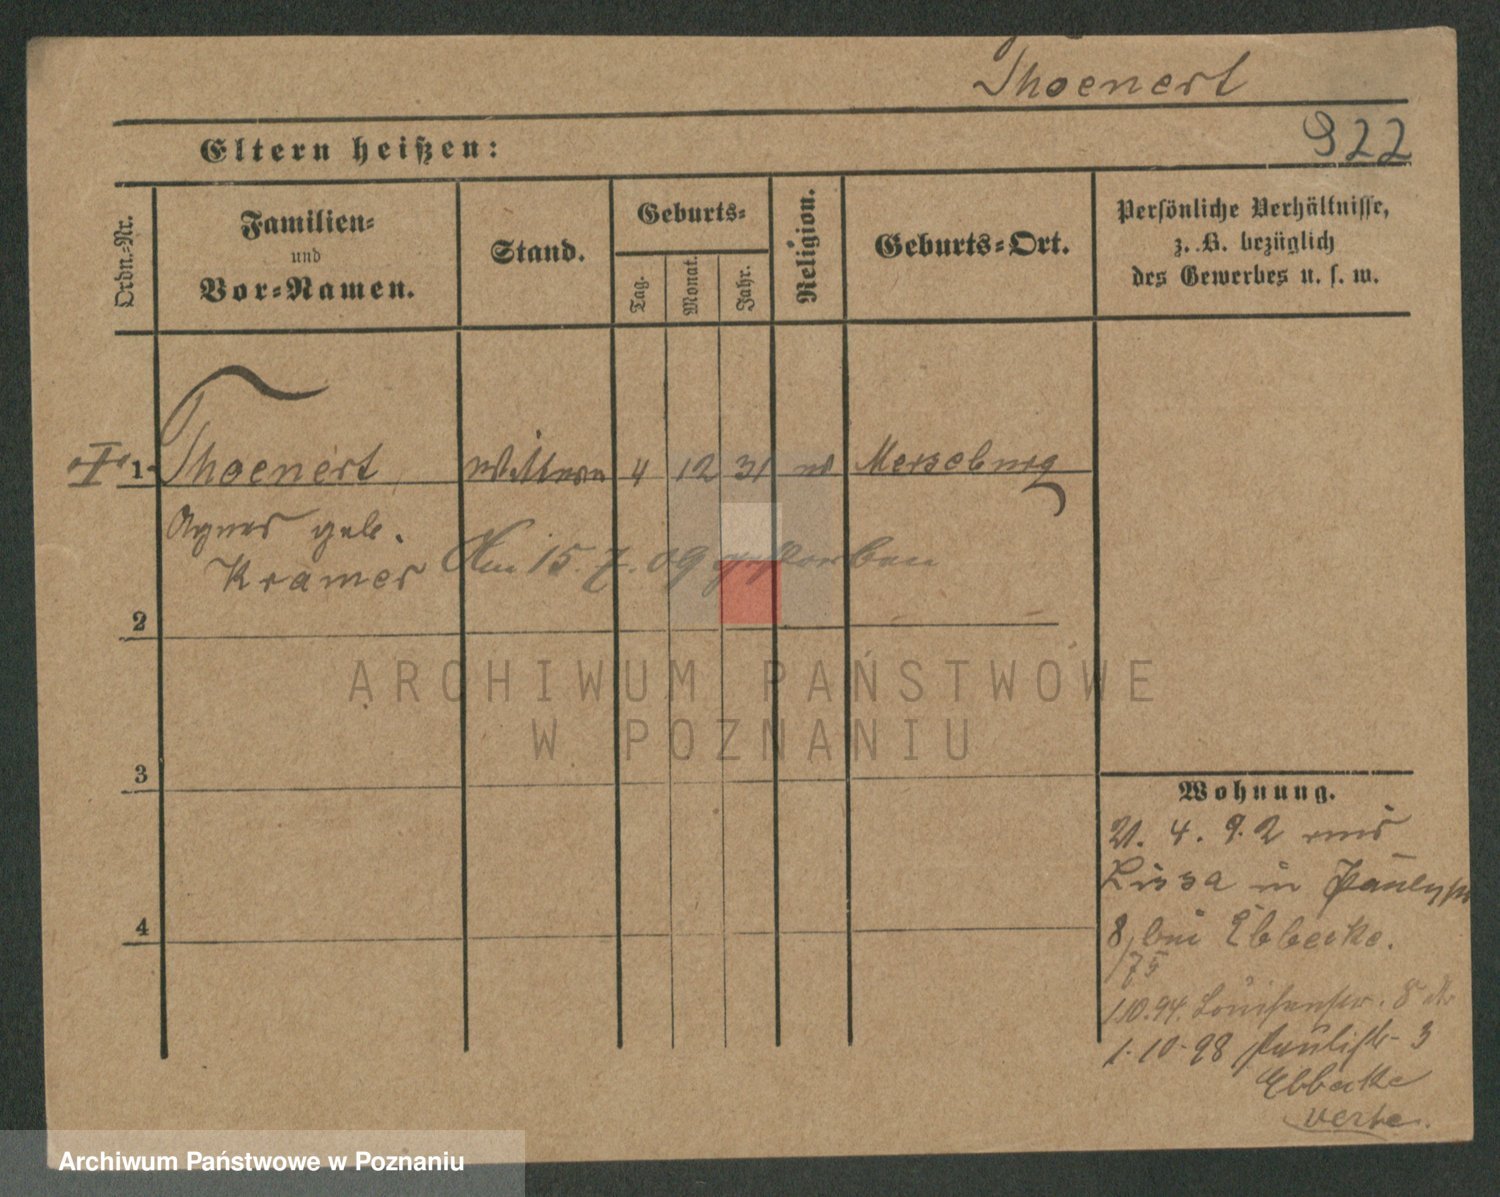 Thoenert
922
Eltern heißen:
Ordn.-Nr.
Familien-
und
Vor-Namen.
Stand.
Geburts-
Tag.
Monat.
Jahr.
Religion.
Geburts-Ort.
Persönliche Verhältnisse,
z. B. bezüglich
des Gewerbes u. s. w.
1 Thoenert Wittwe 4 12 31 Merseburg
Agnes geb.
Kramer
Am 15. 7. 09 gestorben
2
3
4
ARCHIWUM PAŃSTWOWE
W POZNANIU
Wohnung.
21. 4. 92 aus
Lissa in
8, bei Ebbecke.
75
1.10.94. Louisenstr. 8
1-10-98 Paulistr. 3
Ebbecke
Archiwum Państwowe w Poznaniu